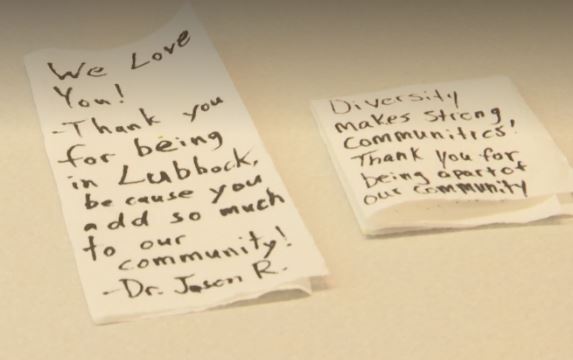 We Love
You!
-Thank you
for being
in Lubbock,
because you
add so much
to our
community!
-Dr. Jason R.
Diversity
makes strong,
communities.
Thank you for
being apart of
our community